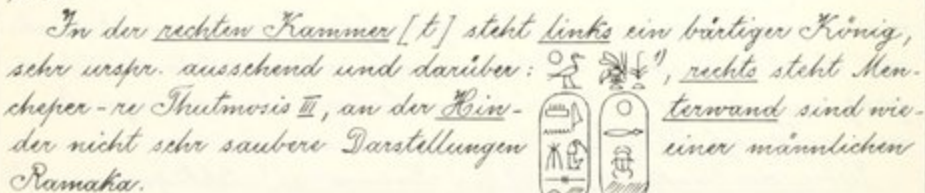 In der rechten Kammer [t] steht links ein bärtiger König,
sehr urspr. aussehend und darüber: 𓅭𓇳 𓆤 ¹⁾, rechts steht Men-
cheper-re Thutmosis III, an der Hin- terwand sind wie-
der nicht sehr saubere Darstellungen einer männlichen
Ramaka.